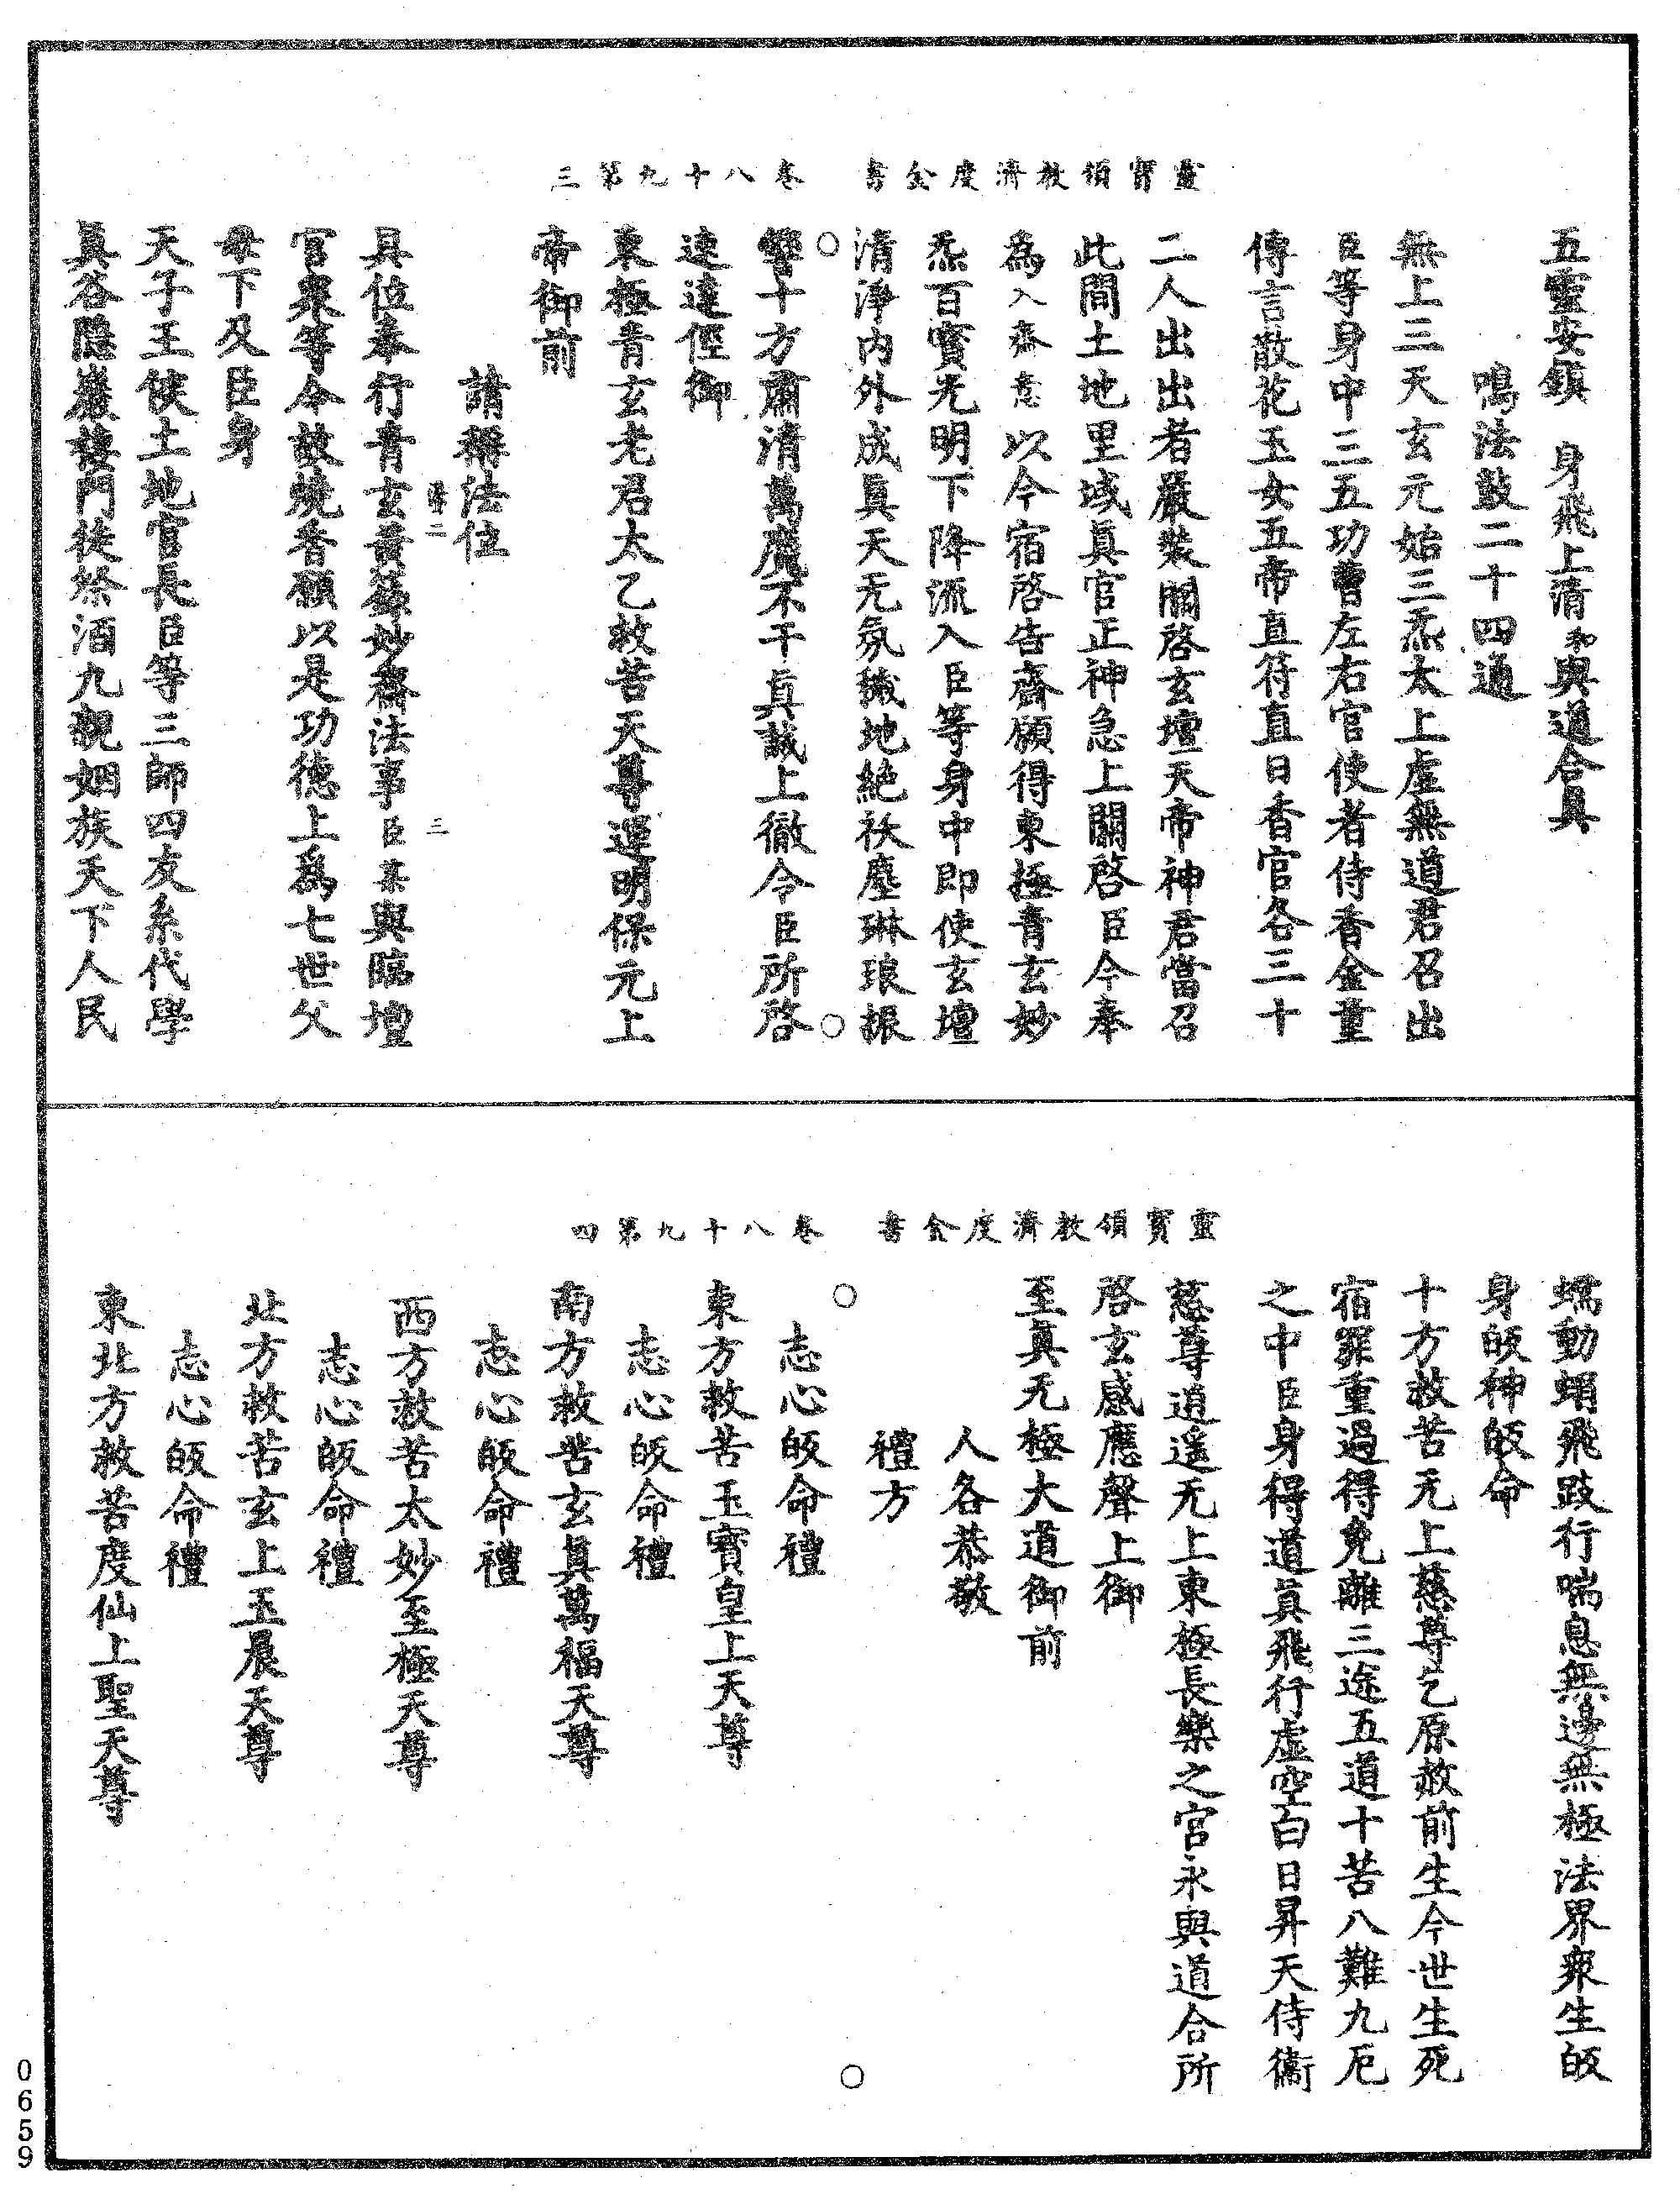 靈寶領教濟度金書　卷八十九第三
五靈安鎮　身飛上清和與道合真
鳴法鼓二十四通
無上三天玄元始三炁太上虛無道君召出
臣等身中三五功曹左右官使者侍香金童
傳言散花玉女五帝直符直日香官各三十
二人出出者嚴裝關啓玄壇天帝神君當召
此間土地里域真官正神急上關啓臣今奉
為入齋意以今宿啓告齋願得東極青玄妙
炁百寶光明下降流入臣等身中即使玄壇
清淨内外成真天无氛穢地絶祅塵琳琅振
響十方肅清萬魔不干真誠上徹令臣所啓
速達徑御
東極青玄老君太乙救苦天尊運明保元上
帝御前
請稱法位
具位奉行青玄黃籙妙齋法事臣某與臨壇
官衆等今故燒香願以是功德上為七世父
母下及臣身
天子王侯土地官長臣等三師四友系代學
真谷隱巖棲門徒祭酒九親姻族天下人民
靈寶領教濟度金書　卷八十九第四
蠕動蜎飛跂行喘息無邊無極法界衆生皈
身皈神皈命
十方救苦无上慈尊乞原赦前生今世生死
宿罪重過得免離三途五道十苦八難九厄
之中臣身得道真飛行虛空白日昇天侍衞
慈尊逍遥无上東極長樂之宮永與道合所
啓玄感應聲上御
至真无極大道御前
人各恭敬
禮方
志心皈命禮
東方救苦玉寶皇上天尊
志心皈命禮
南方救苦玄真萬福天尊
志心皈命禮
西方救苦太妙至極天尊
志心皈命禮
北方救苦玄上玉晨天尊
志心皈命禮
東北方救苦度仙上聖天尊
0659